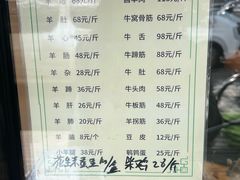 羊肚 68元/斤 牛窝骨筋 68元/斤
羊心 45元/斤 牛舌 98元/斤
羊筋 48元/斤 牛蹄筋 88元/斤
羊杂 28元/斤 牛肚 68元/斤
羊蹄 36元/斤 牛头肉 58元/斤
羊肝 28元/斤 牛板筋 48元/斤
羊肺 20元/斤 羊拐筋 36元/斤
羊脑 8元/个 豆皮 12元/斤
小羊腿 38元/斤 鹌鹑蛋 25元/斤
花生米蚕豆 10/盒 柴鸡 28/斤